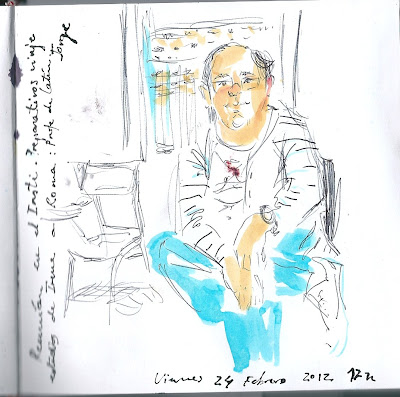 Reunión en el Insti. Preparativos viaje
estudios de Irene a Roma: Profe de Latín y
Jorge
Viernes 24 Febrero 2012. 17 h